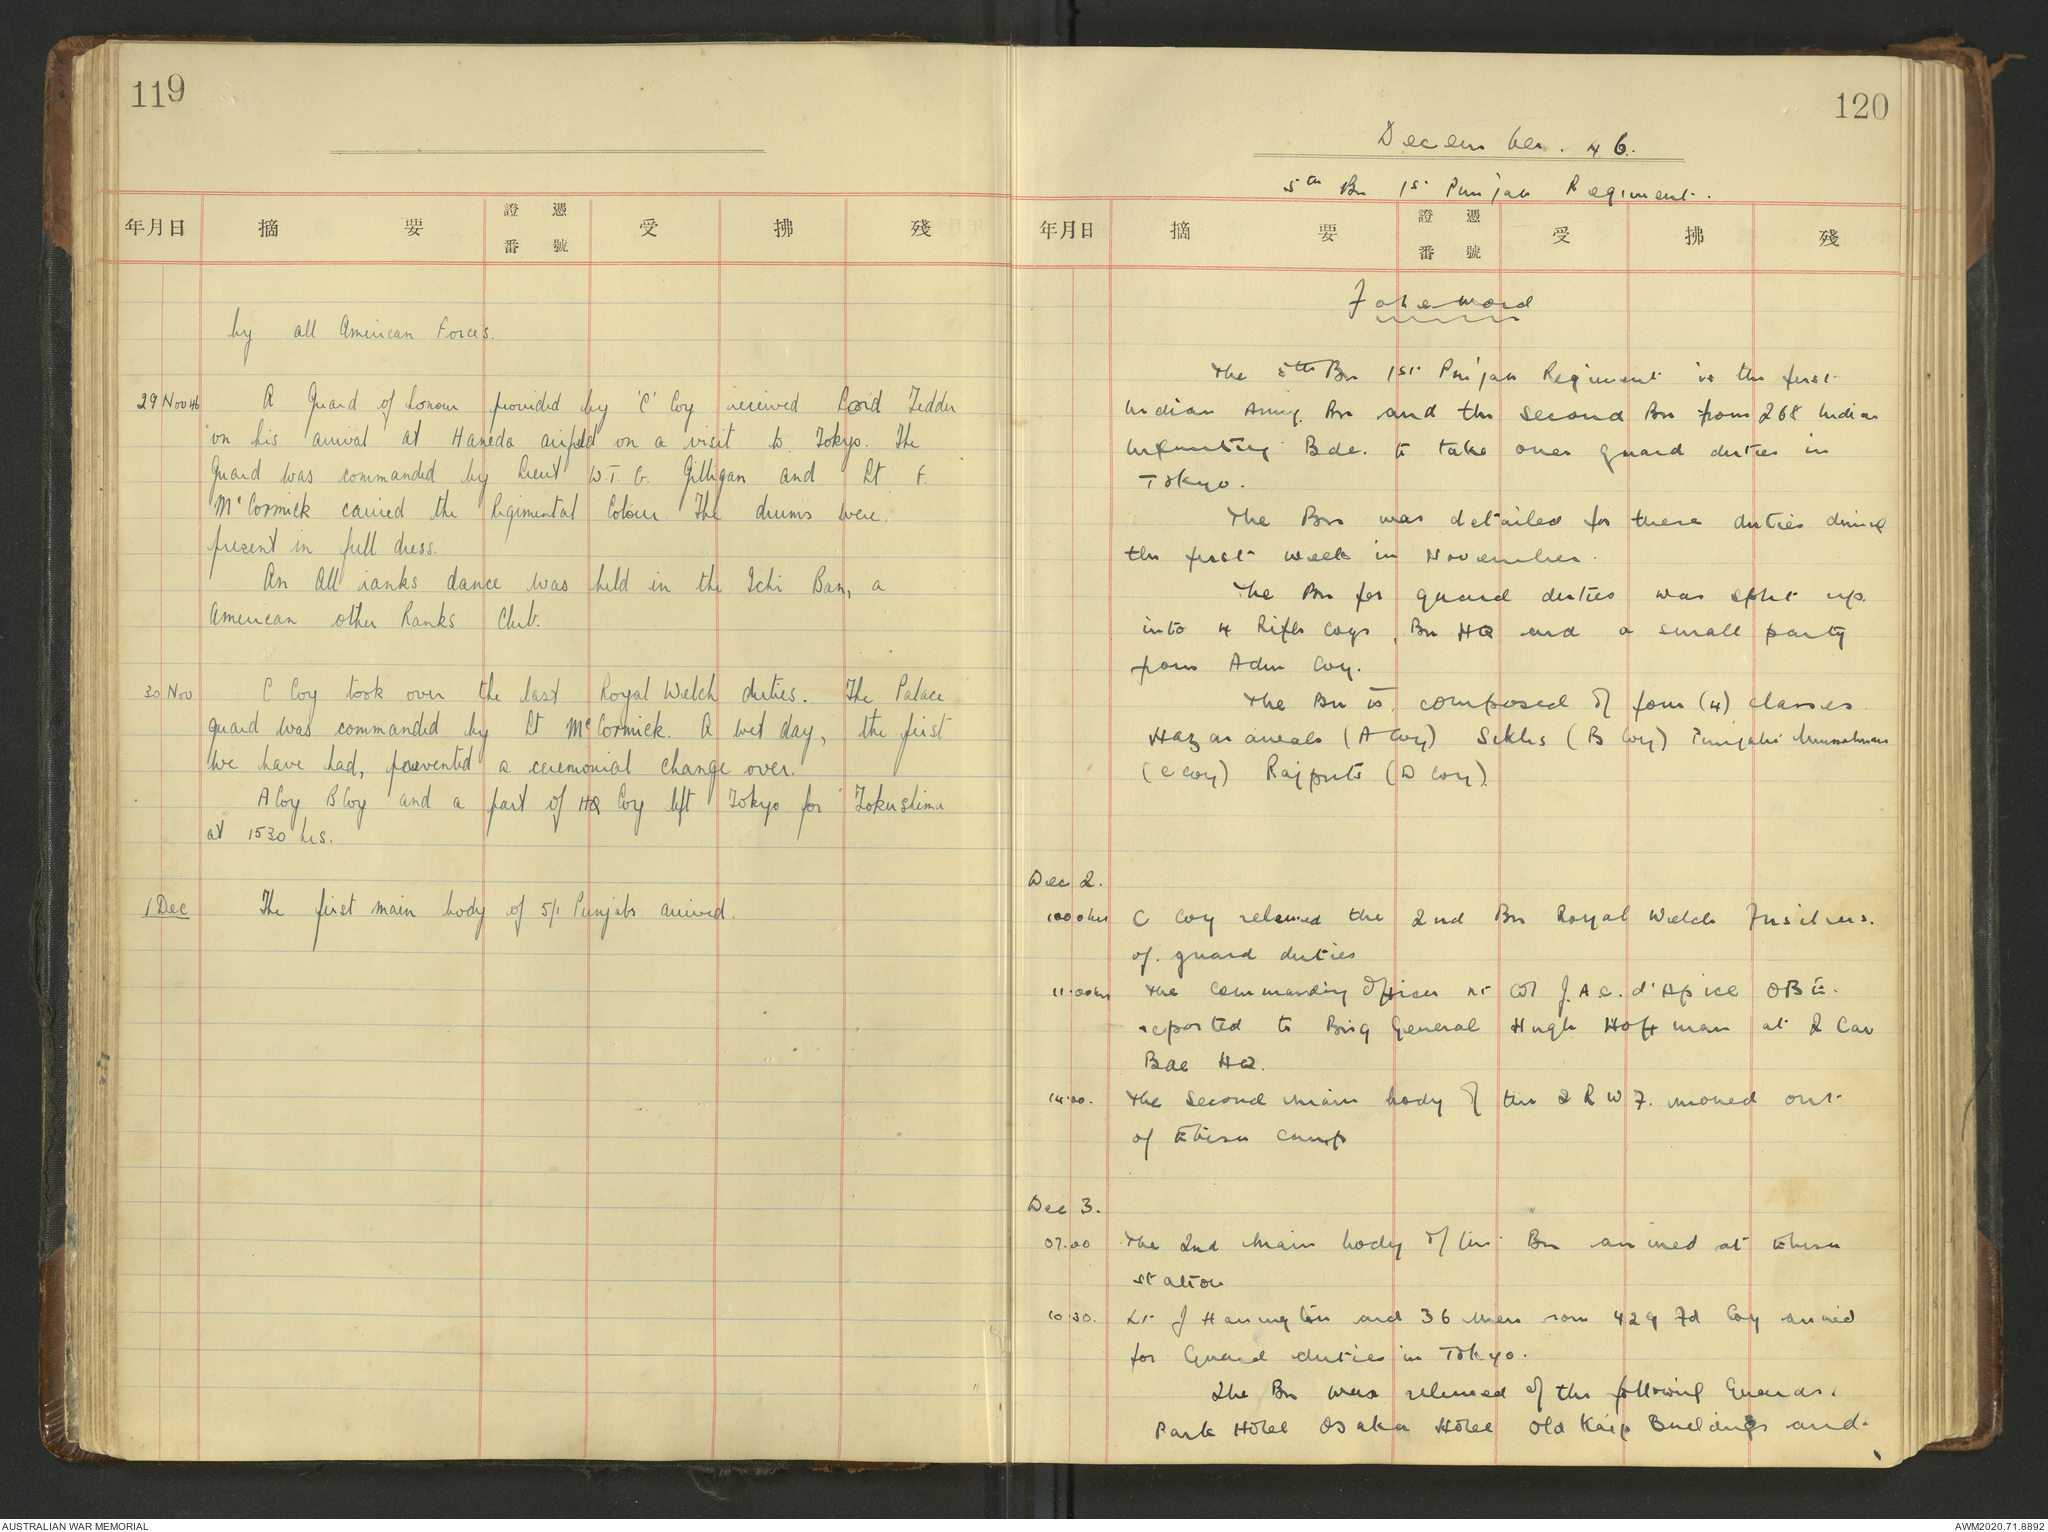 119
年月日 摘 要 證憑番號 受 拂 殘
by all American Forces.
29 Nov 46 A Guard of honour provided by 'C' Coy received Lord Tedder
on his arrival at Haneda airfield on a visit to Tokyo. The
Guard was commanded by Lieut W.T.G. Gilligan and Lt F.
McCormick carried the Regimental Colour. The drums were
present in full dress.
An All ranks dance was held in the Ichi Ban, a
American other Ranks Club.
30 Nov C Coy took over the last Royal Welch duties. The Palace
guard was commanded by Lt McCormick. A wet day, the first
we have had, prevented a ceremonial change over.
A Coy B Coy and a part of HQ Coy left Tokyo for Tokushima
at 1530 hrs.
1 Dec The first main body of 5/1 Punjabs arrived.
120
December. 46.
5th Bn 1st Punjab Regiment.
年月日 摘 要 證憑番號 受 拂 殘
Foreword
The 5th Bn 1st Punjab Regiment is the first
Indian Army Bn and the second Bn from 268 Indian
Infantry Bde. to take over guard duties in
Tokyo.
The Bn was detailed for these duties during
the first week in November.
The Bn for guard duties was split up
into 4 Rifle Coys, Bn HQ and a small party
from Adm Coy.
The Bn is composed of four (4) classes
Hazarawals (A Coy) Sikhs (B Coy) Punjabi Mussalmans
(C Coy) Rajputs (D Coy).
Dec 2.
1000hrs C Coy relieved the 2nd Bn Royal Welch Fusiliers.
of guard duties
11.00hrs The Commanding Officer Lt Col J.A.C. d'Apice OBE.
reported to Brig General Hugh Hoffman at 2 Cav
Bde HQ.
14.00. The second main body of the 2 R W F. moved out
of Ebisu camp
Dec 3.
07.00 The 2nd main body of the Bn arrived at Ebisu
station
10.30. Lt J Harrington and 36 men from 429 Fd Coy arrived
for Guard duties in Tokyo.
The Bn was relieved of the following Guards.
Park Hotel Osaka Hotel Old Kaijo Buildings and
AUSTRALIAN WAR MEMORIAL
AWM2020.71.8892